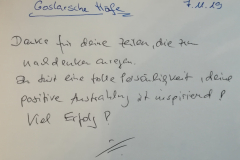 Goslarsche Höfe 7.11.19
Danke für deine Zeilen, die zum
nachdenken anregen.
Du bist eine tolle Persönlichkeit, deine
positive Ausstrahlung ist inspirierend!
Viel Erfolg!